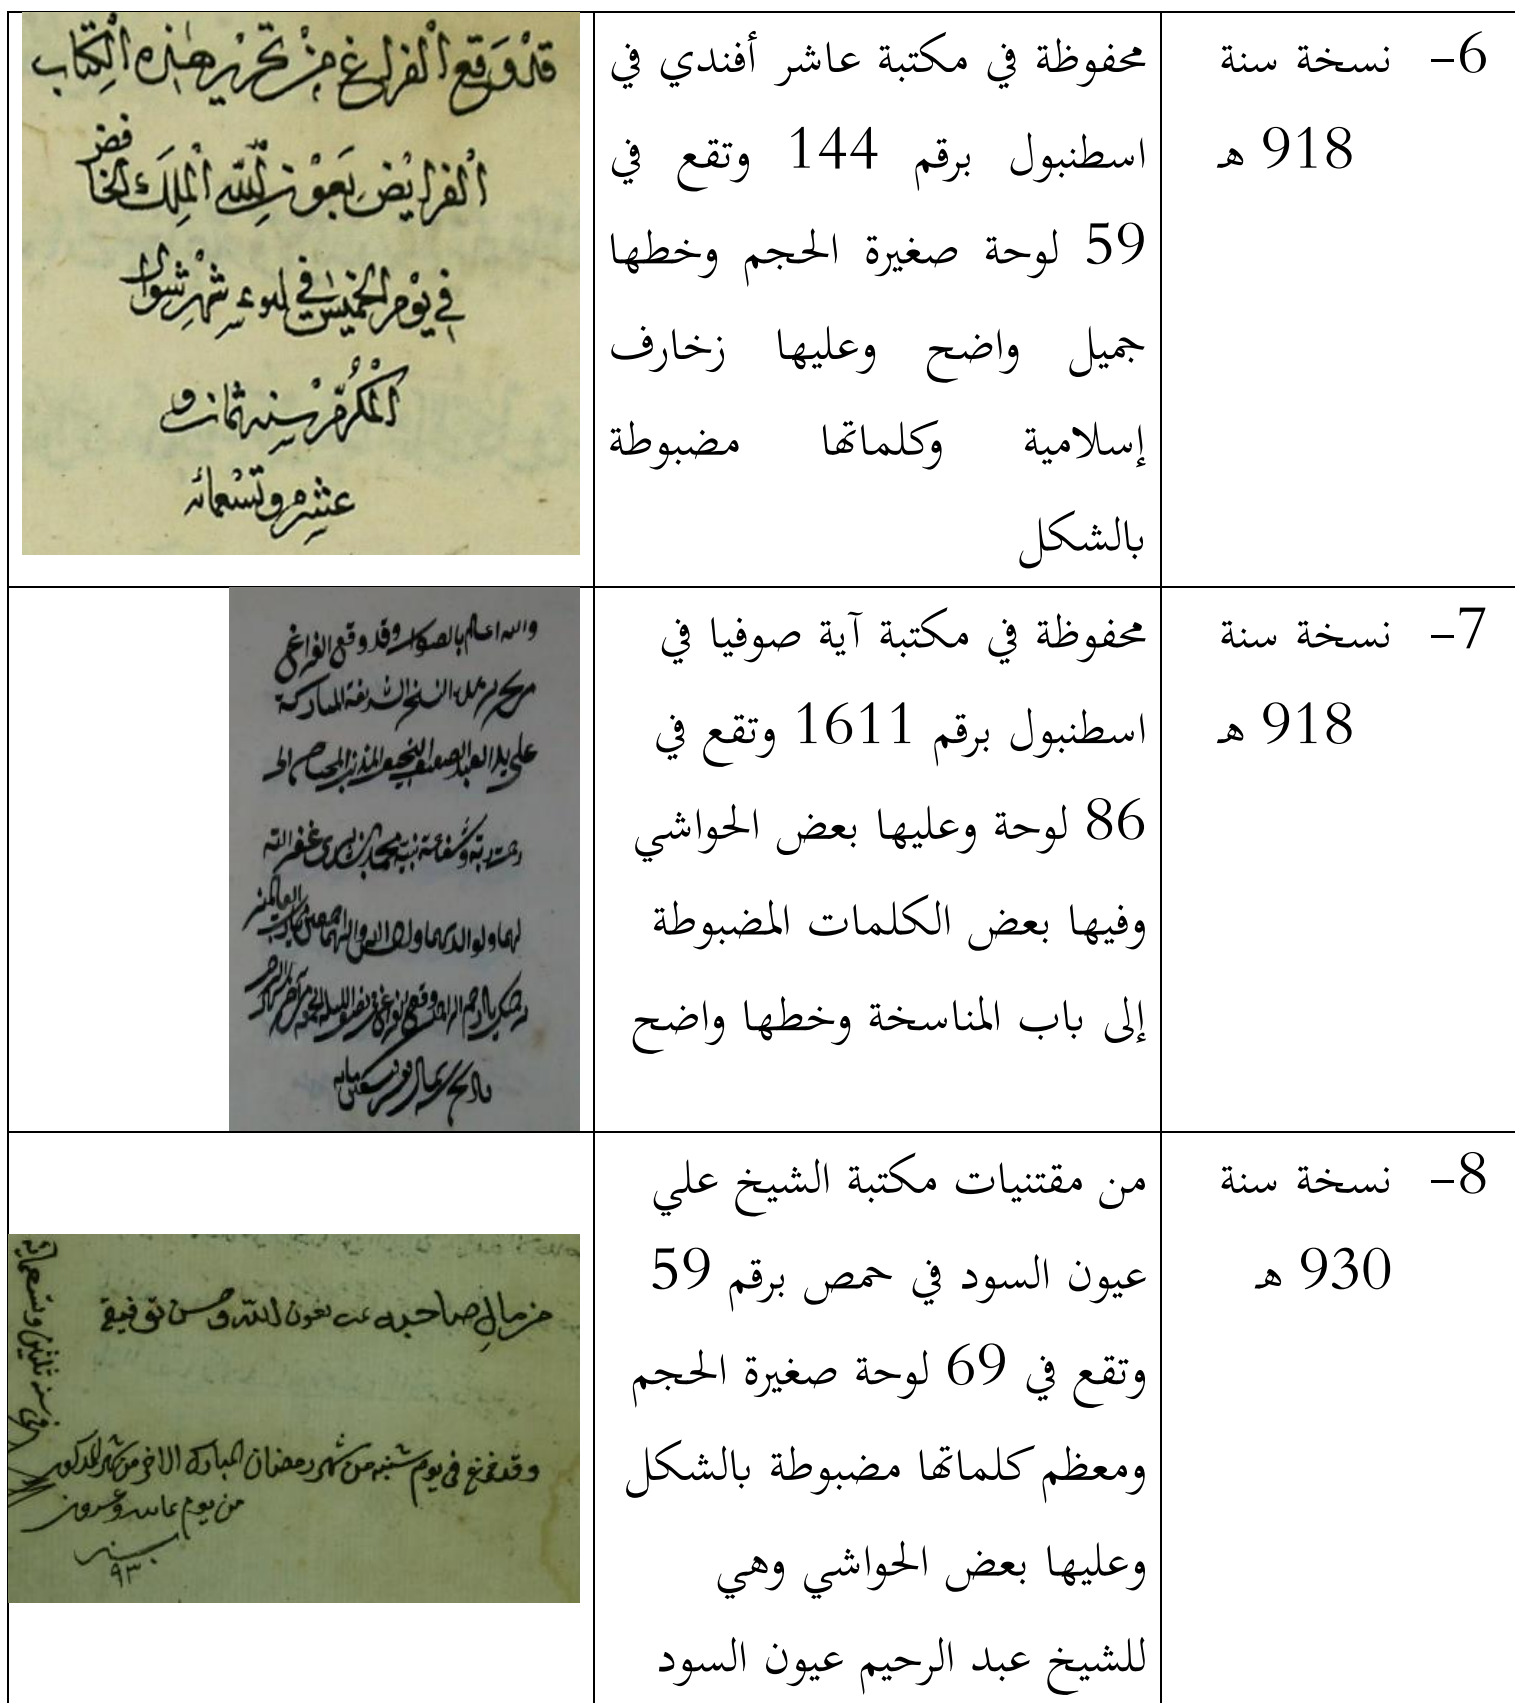 6- نسخة سنة
918 هـ
محفوظة في مكتبة عاشر أفندي في
اسطنبول برقم 144 وتقع في
59 لوحة صغيرة الحجم وخطها
جميل واضح وعليها زخارف
إسلامية وكلماتها مضبوطة
بالشكل
قَدْ وَقَعَ الْفَراغ مِنْ تَحْرِيرِ هٰذِهِ الْكِتَاب
الْفَرايِضِ بِعَوْنِ اللّٰهِ الْمَلِك
فِي يَوْمِ الْخَمِيسْ فِي شَهْرِ شَوال
الْمُكَرَّمْ سنه ثمان و
عَشِر وتسْعمائه
7- نسخة سنة
918 هـ
محفوظة في مكتبة آية صوفيا في
اسطنبول برقم 1611 وتقع في
86 لوحة وعليها بعض الحواشي
وفيها بعض الكلمات المضبوطة
إلى باب المناسخة وخطها واضح
والله اعلم بالصواب وقد وقع الفراغ
الشريفة المباركة
على يد العبد الضعيف النحيف المذنب المحتاج الى
غفر الله
لهما ولوالديهما
8- نسخة سنة
930 هـ
من مقتنيات مكتبة الشيخ علي
عيون السود في حمص برقم 59
وتقع في 69 لوحة صغيرة الحجم
ومعظم كلماتها مضبوطة بالشكل
وعليها بعض الحواشي وهي
للشيخ عبد الرحيم عيون السود
من مالِ صاحبه بعون الله وحسن توفيقه
وقد فرغ فى يوم شنبه من شهر رمضان المبارك الاخر من شهر المذكور
من يوم
سنه
٩٣
فى سنه ثلثين وتسعمائه